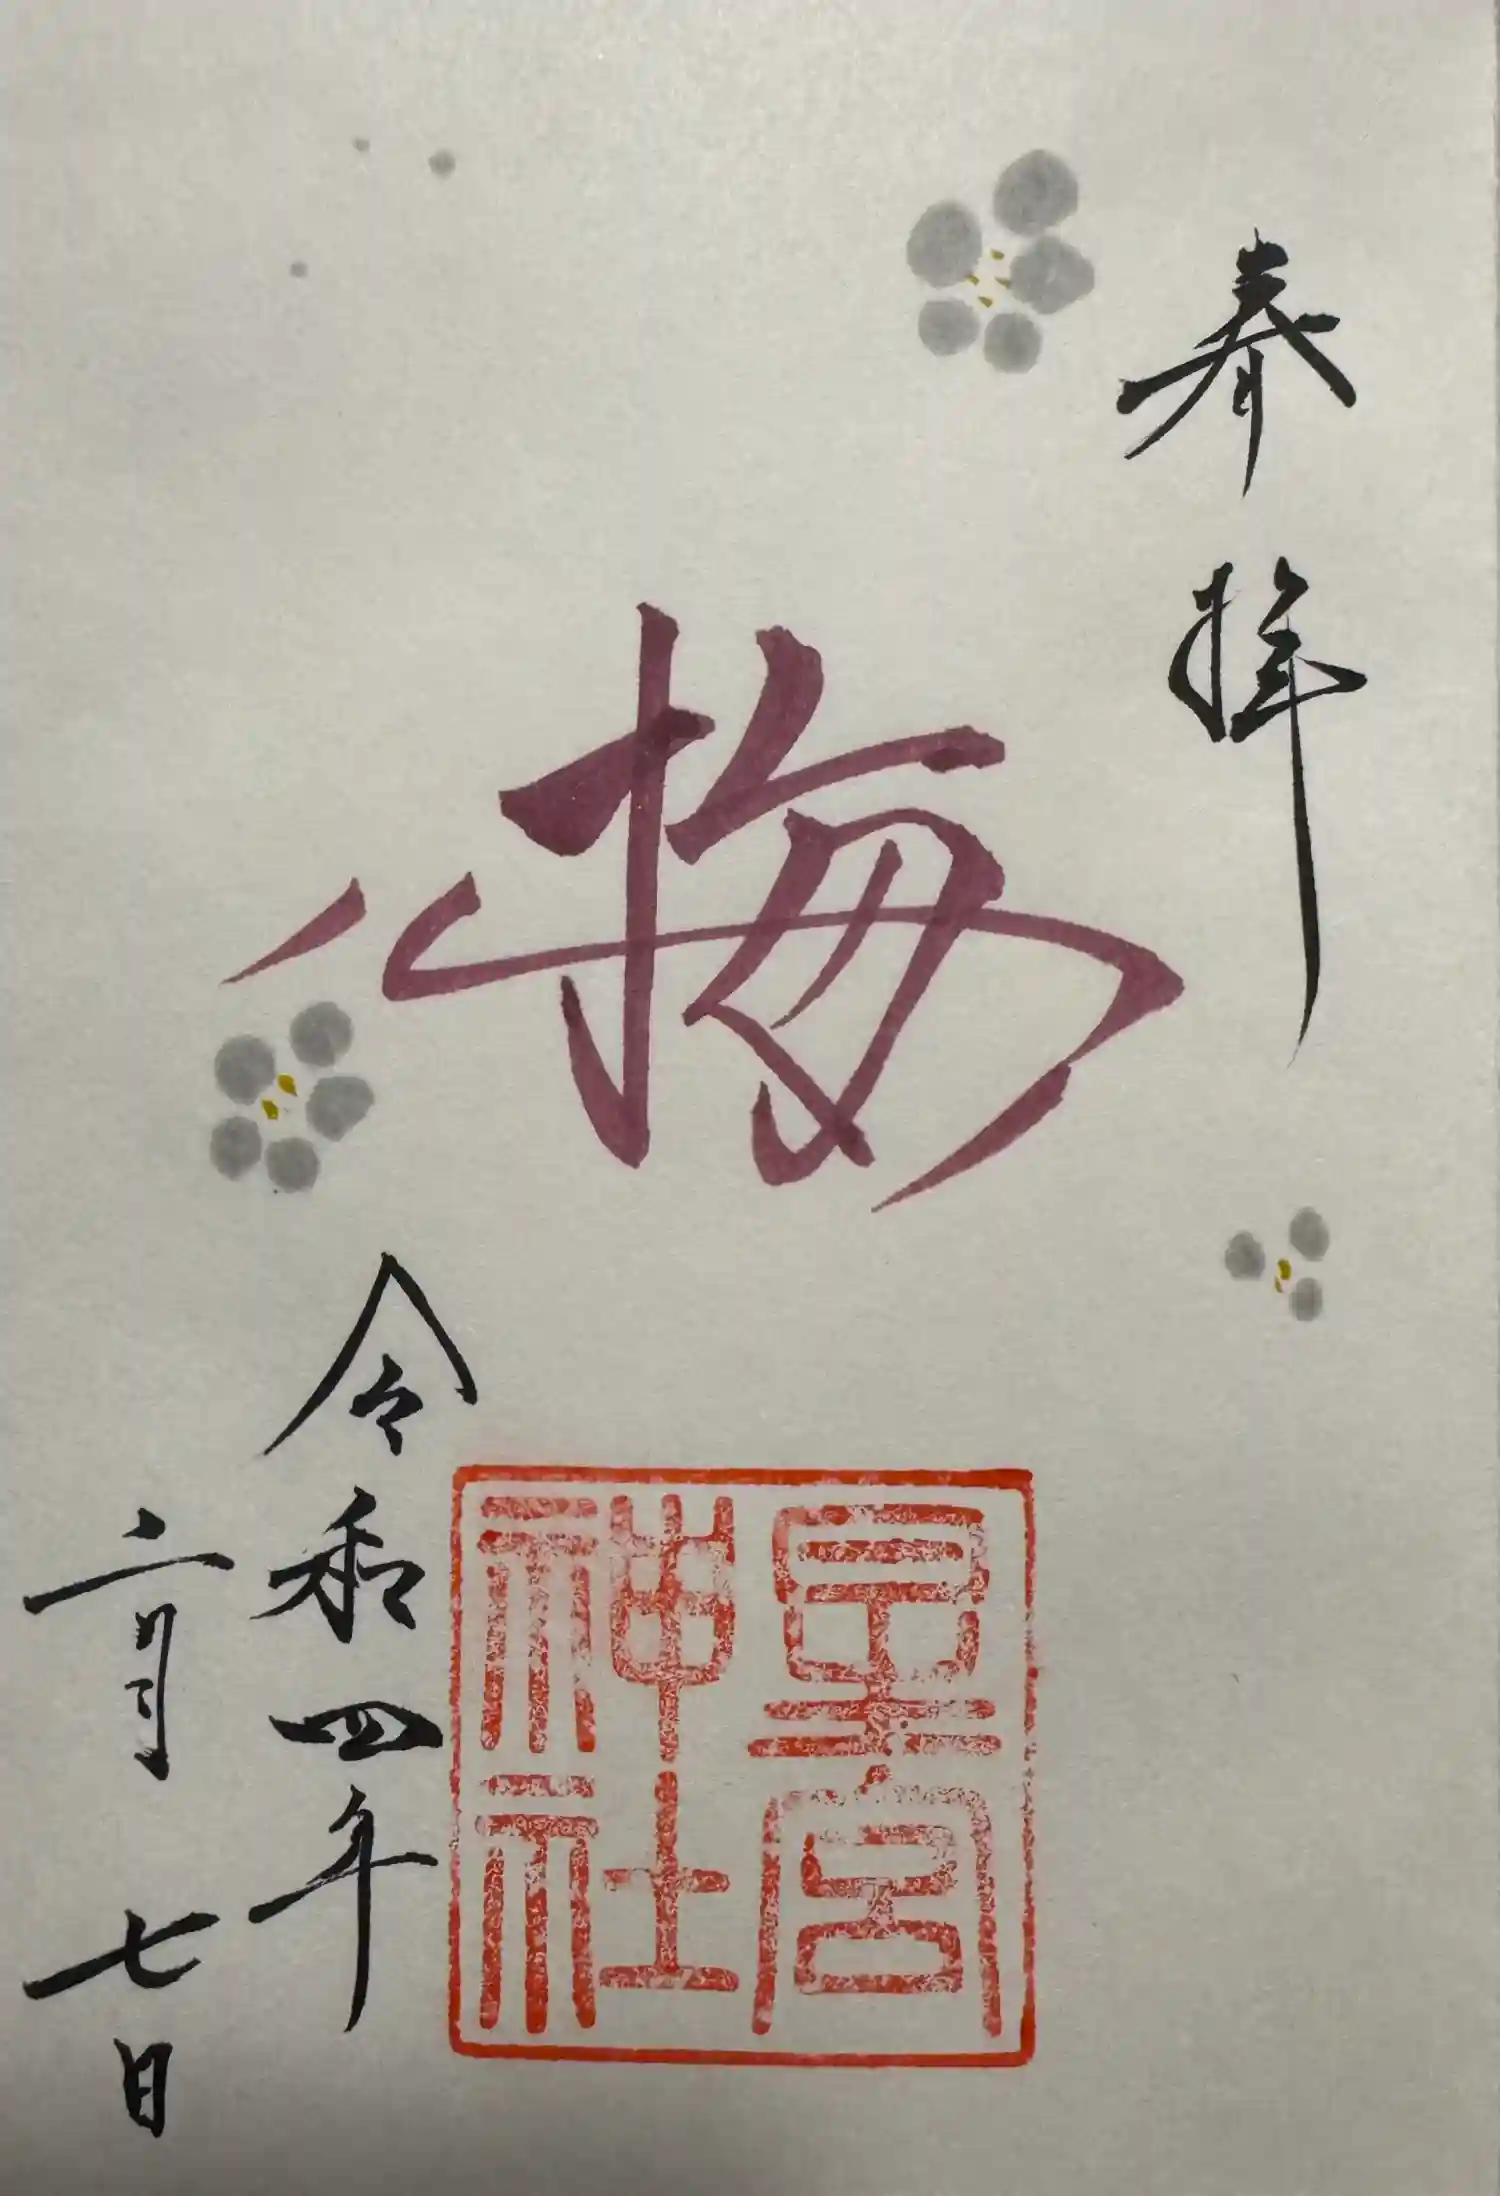 奉拝
梅
星宮
神社
令和四年
二月七日